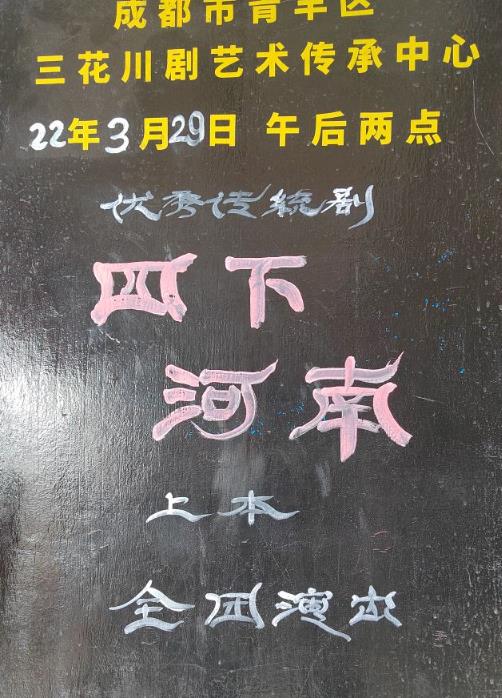 成都市青羊区
三花川剧艺术传承中心
22年3月29日 午后两点
优秀传统剧
四下
河南
上本
全团演出